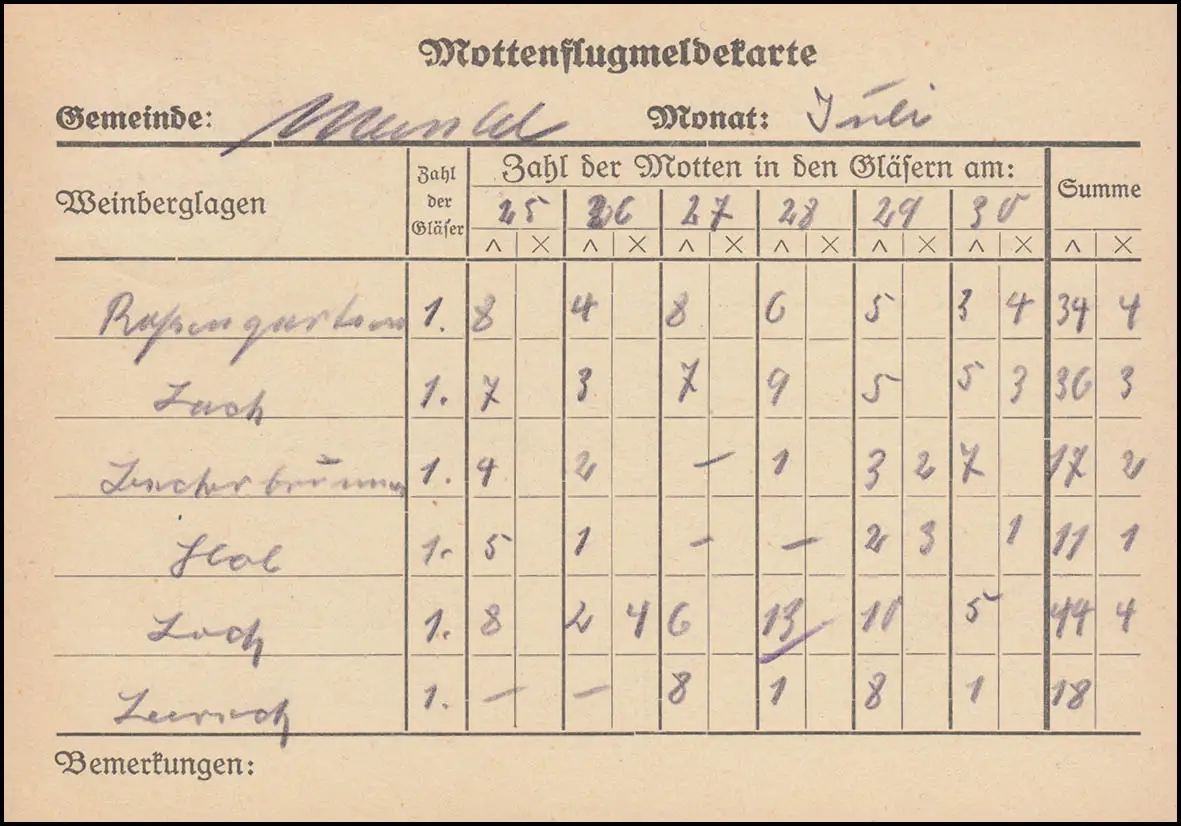 Mottenflugmeldekarte
Gemeinde: Monat: Juli
Weinberglagen Zahl der Gläser Zahl der Motten in den Gläsern am: Summe
25 26 27 28 29 30
^ × ^ × ^ × ^ × ^ × ^ × ^ ×
1. 8 4 8 6 5 3 4 34 4
Lach 1. 7 3 7 9 5 5 3 36 3
1. 4 2 – 1 3 2 7 17 2
1. 5 1 – – 2 3 1 11 1
Loch 1. 8 2 4 6 13 10 5 44 4
1. – – 8 1 8 1 18
Bemerkungen: